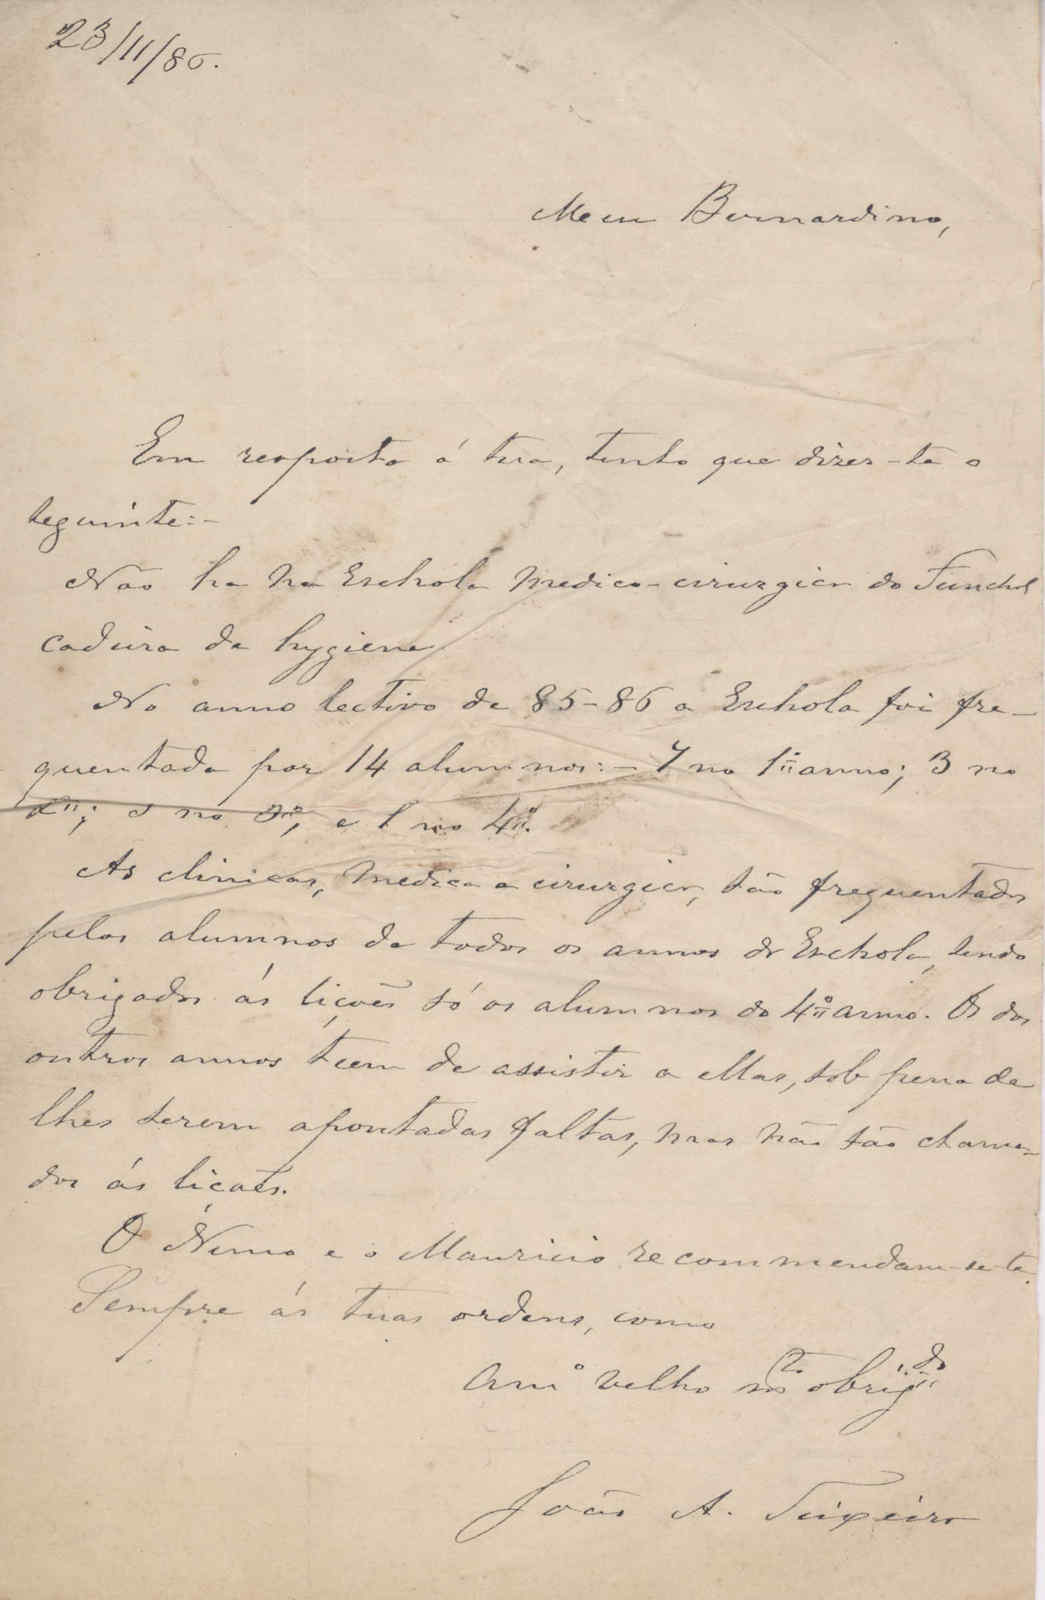 23/11/86.
Meu Bernardino,
Em resposta á tua, tenho que dizer-te o
seguinte:-
Não ha na Eschola medico-cirurgica do Funchal
cadeira de hygiene.
No anno lectivo de 85-86 a Eschola foi fre-
quentada por 14 alumnos:- 7 no 1º anno; 3 no
2º; 3 no 3º, e 1 no 4º.
As clinicas, medica e cirurgica, são frequentadas
pelos alumnos de todos os annos da Eschola, sendo
obrigados ás licções só os alumnos do 4º anno. Os dos
outros annos teem de assistir a ellas, sob pena de
lhes serem apontadas faltas, mas não são chama-
dos ás licções.
O Nuno e o Mauricio recommendam-se-te.
Sempre ás tuas ordens, como
Amº velho mto obrigdo
João A. Teixeira